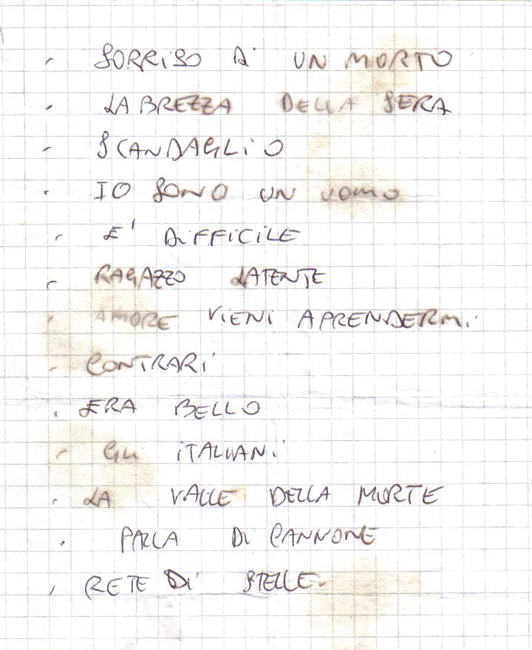 - SORRISO DI UN MORTO
- LA BREZZA DELLA SERA
- SCANDAGLIO
- IO SONO UN UOMO
- E' DIFFICILE
- RAGAZZO LATENTE
- AMORE VIENI APRENDERMI.
- CONTRARI
- ERA BELLO
- GLI ITALIANI
- LA VALLE DELLA MORTE
- PALLA DI CANNONE
- RETE DI STELLE.